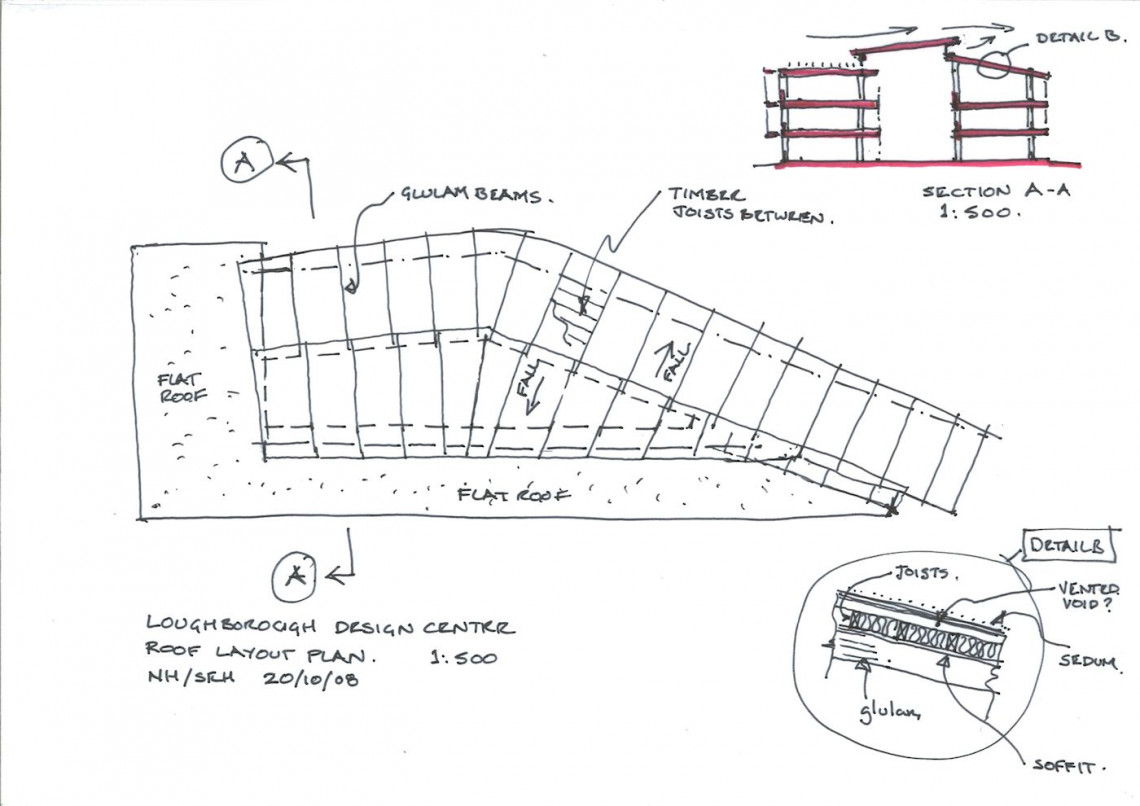 DETAIL B.
SECTION A-A
1:500.
A
GLULAM BEAMS.
TIMBER
JOISTS BETWEEN.
FLAT
ROOF
FALL
FALL
FLAT ROOF
A
LOUGHBOROUGH DESIGN CENTER
ROOF LAYOUT PLAN. 1:500
NH/SRH 20/10/08
DETAIL B
JOISTS.
VENTED
VOID?
SEDUM.
glulam
SOFFIT.